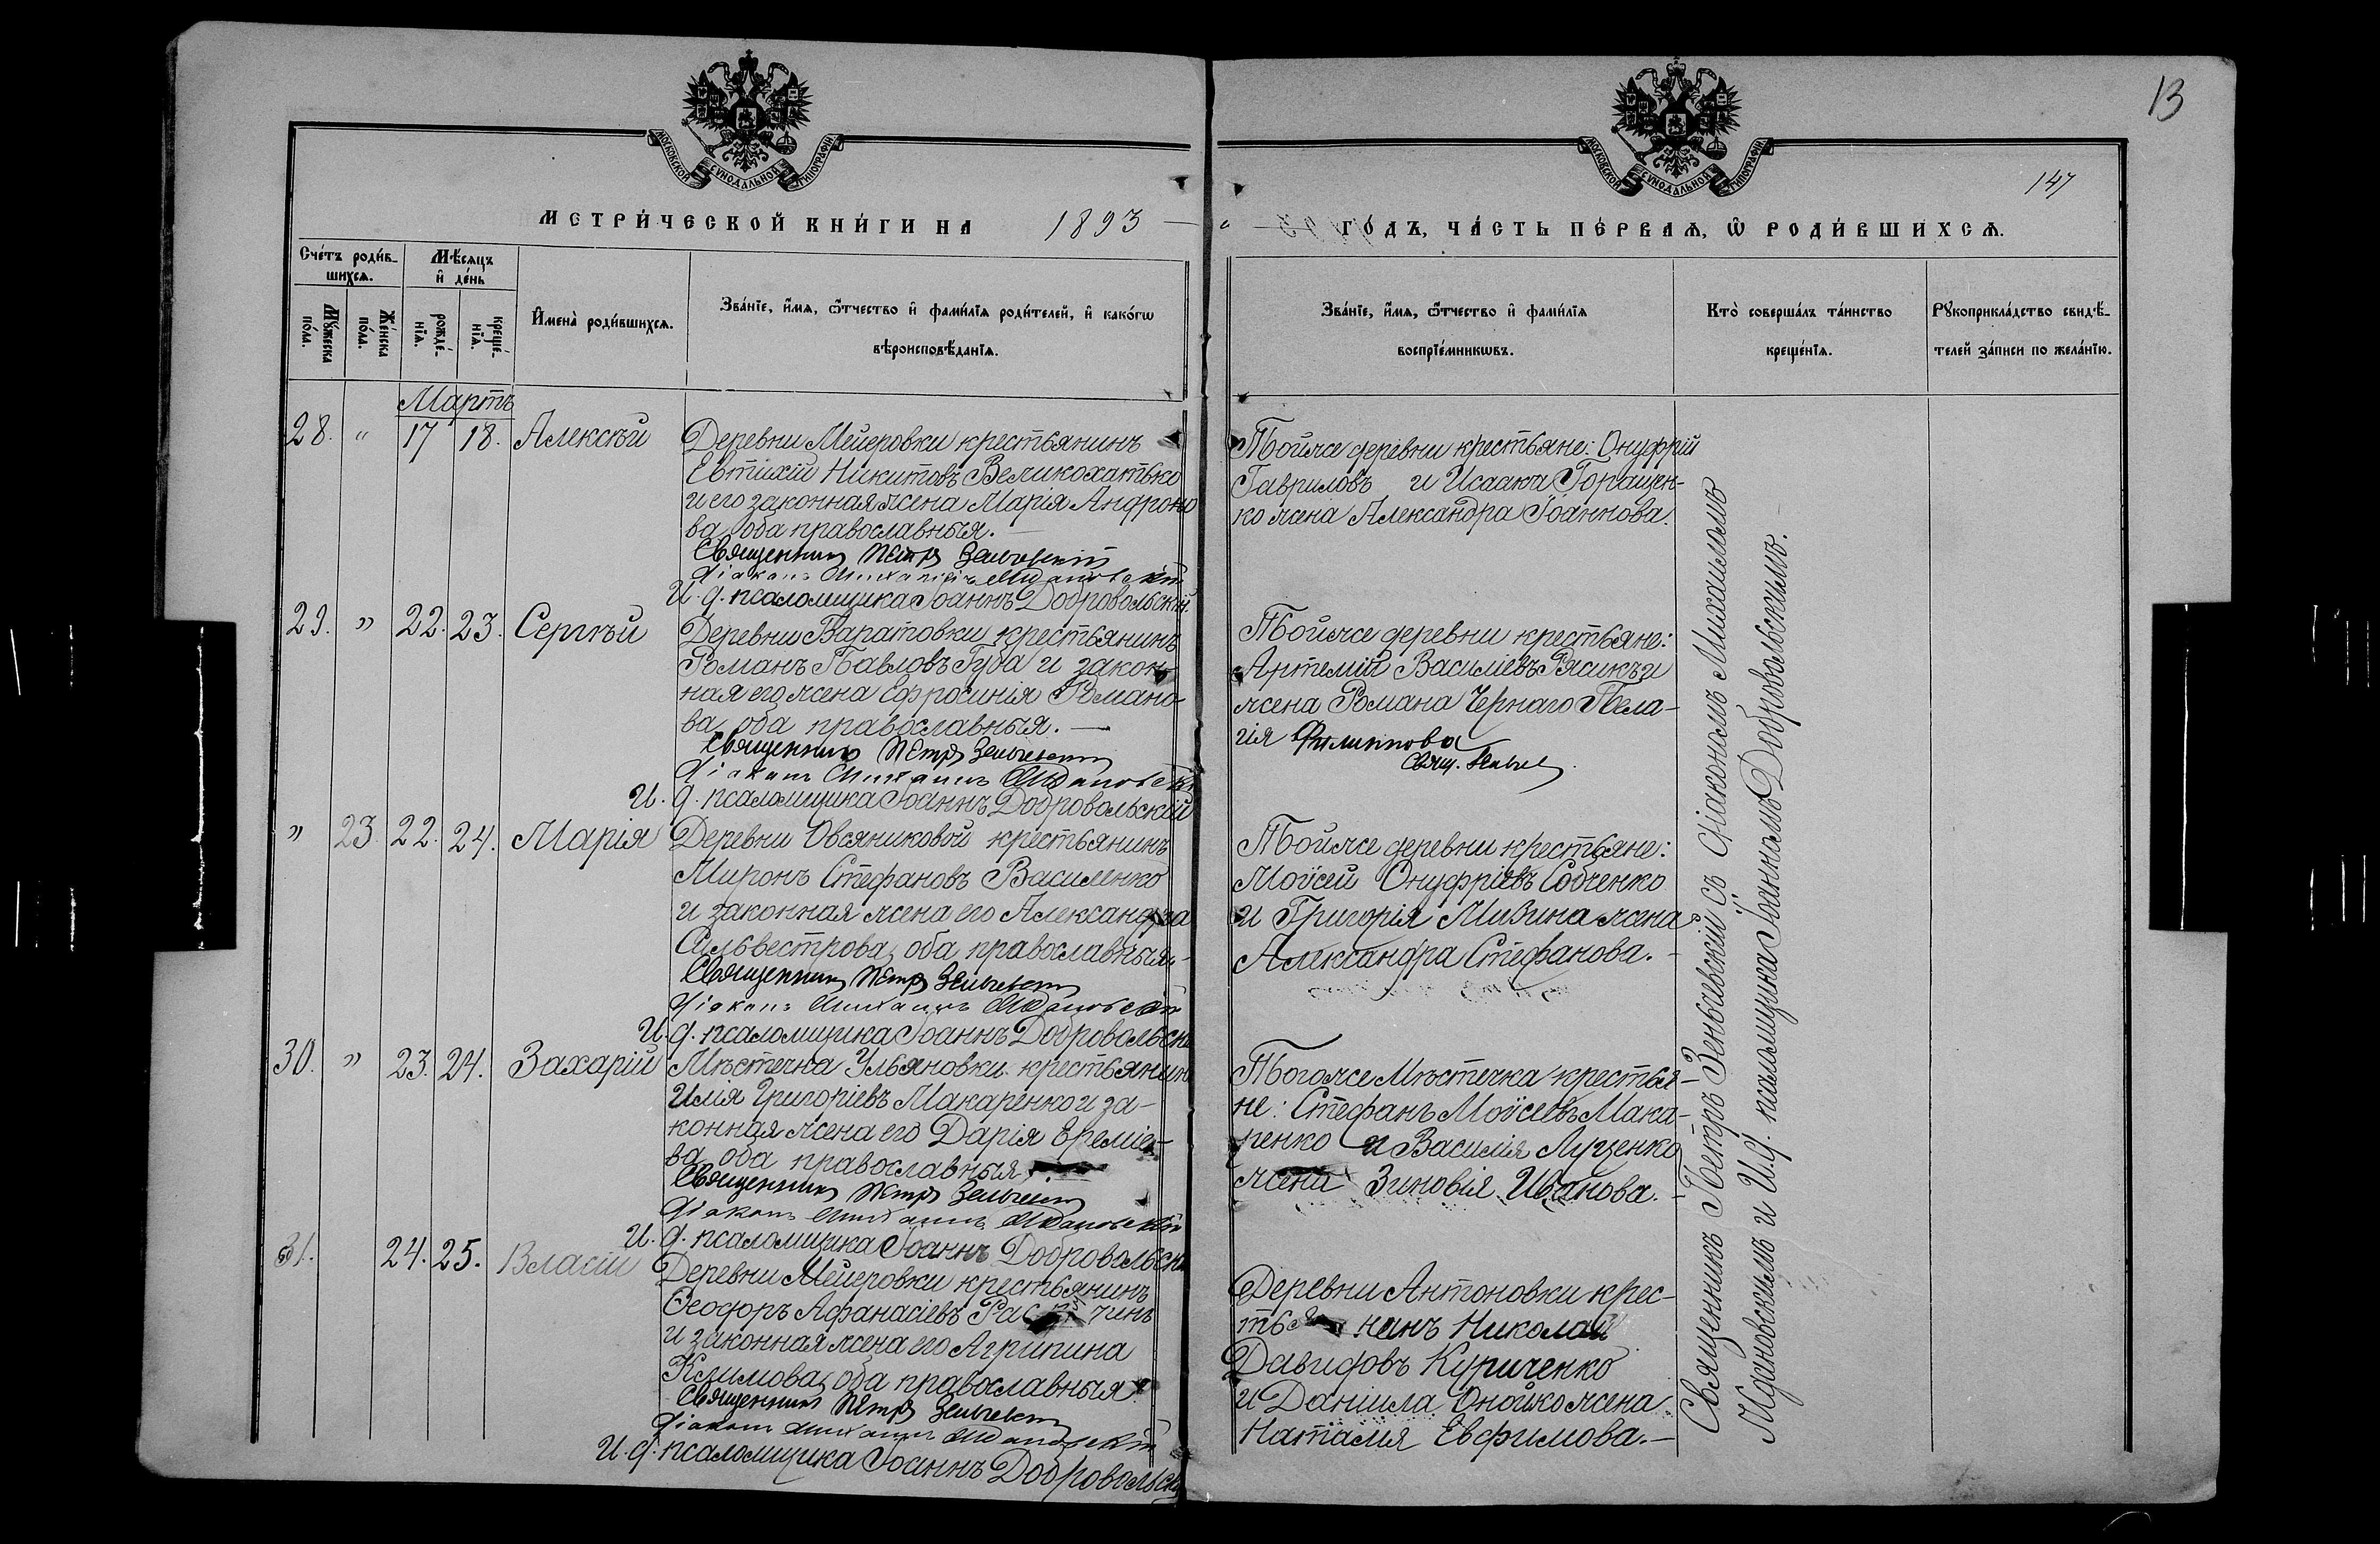 13
147
МОСКОВСКОЙ СУНОДАЛЬНОЙ ТИПОГРАФІИ
МОСКОВСКОЙ СУНОДАЛЬНОЙ ТИПОГРАФІИ
МЕТРИ́ЧЕСКОЙ КНИ́ГИ НА 1893
ГО́ДЪ, ЧА́СТЬ ПЕ́РВАѦ, Ѿ РОДИ́ВШИХСѦ.
Сче́тъ роди́в-
шихсѧ.
Мѣ́сѧцъ
и҆ де́нь
Мꙋ́жеска по́ла.
Же́нска по́ла.
рожде́-
нїѧ.
креще́-
нїѧ.
И҆мена̀ роди́вшихсѧ.
Зва́нїе, и҆́мѧ, ѻ҆́тчество и҆ фами́лїѧ роди́телей, и҆ како́гѡ
вѣроисповѣ́данїѧ.
Зва́нїе, и҆́мѧ, ѻ҆́тчество и҆ фами́лїѧ
воспрїе́мникѡвъ.
Кто̀ соверша́лъ та́инство
креще́нїѧ.
Рꙋкоприкла́дство свидѣ́-
телей за́писи по жела́нїю.
Мартъ
28. " 17 18. Алексѣй
Деревни Мейеровки крестьянинъ
Евтихій Никитовъ Великохатько
и его законная жена Марія Андроно
ва, оба православныя.
Священникъ Петръ Зеньчевскій
Діаконъ Михаилъ Ждановскій
И. д. псаломщика Іоаннъ Добровольскій.
Тойже деревни крестьяне: Онуфрій
Гавриловъ и Исаака Горащен-
ко жена Александра Іоаннова.
29. " 22. 23. Сергѣй
Деревни Таратовки крестьянинъ
Романъ Павловъ Губа и закон
ная его жена Евфросинія Романо-
ва, оба православныя. —
Священникъ Петръ Зеньчевскій
Діаконъ Михаилъ Ждановскій
И. д. псаломщика Іоаннъ Добровольскій
Тойже деревни крестьяне:
Артемій Василіевъ и
жена Романа Чернаго Пела-
гія Филиппова
Свящ.
" 23 22. 24. Марія
Деревни Овсяниковой крестьянинъ
Миронъ Стефановъ Василенко
и законная жена его Александра
Сильвестрова, оба православныя. -
Священникъ Петръ Зеньчевскій
Діаконъ Михаилъ Ждановскій
И. д. псаломщика Іоаннъ Добровольск
Тойже деревни крестьяне:
Мойсей Онуфріевъ Собченко
и Григорія Мизина жена
Александра Стефанова. -
30. " 23. 24. Захарій
Мѣстечка Ульяновки крестьянин
Илія Григоріевъ Макаренко и за-
конная жена его Дарія Ереміе-
ва, оба православныя.
Священникъ Петръ Зеньчевскій
Діаконъ Михаилъ Ждановскій
И. д. псаломщика Іоаннъ Добровольск
Тогоже Мѣстечка крестья-
не: Стефанъ Мойсеевъ Мака-
ренко и Василія Луценко
жена Зиновія Иванова. -
31. 24. 25. Власій
Деревни Мейеровки крестьянинъ
Ѳеодоръ Афанасіевъ
и законная жена его Агрипина
Климова, оба православныя
Священникъ Петръ Зеньчевскій
Діаконъ Михаилъ Ждановскій
И. д. псаломщика Іоаннъ Добровольск
Деревни Антоновки крес-
тья нинъ Николай
Давидовъ Куриченко
и Даніила Онойко жена
Наталія Евфимова. —
Священникъ Петръ Зеньчевскій съ Діакономъ Михаиломъ
Ждановскимъ и И. д. псаломщика Іоанномъ Добровольскимъ.